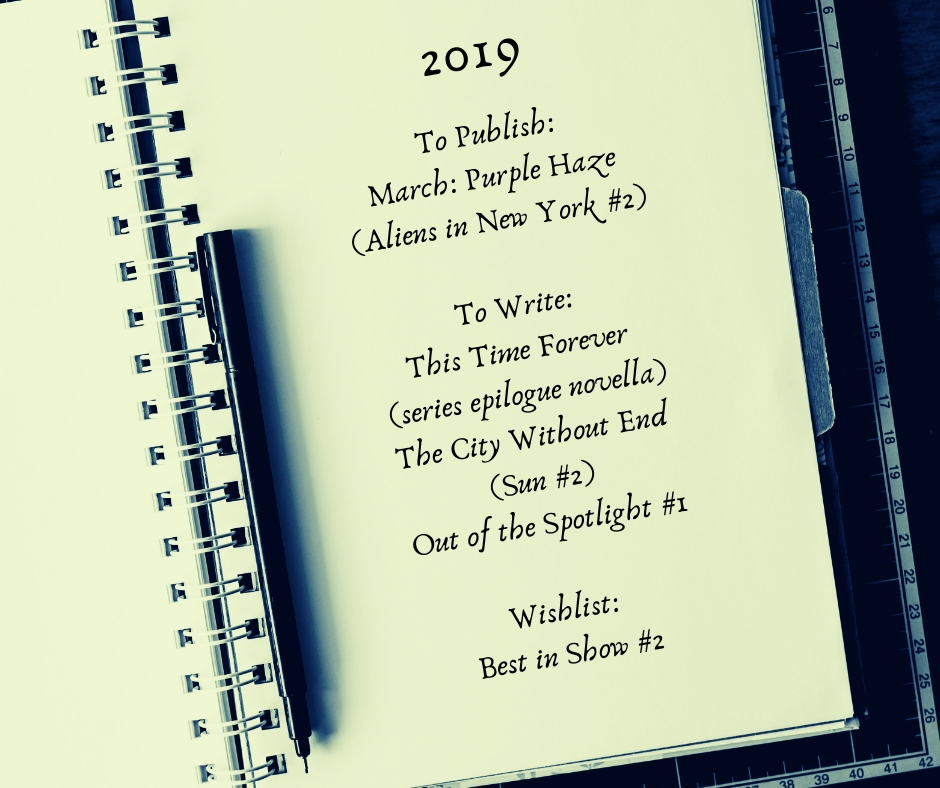 2019
To Publish:
March: Purple Haze
(Aliens in New York #2)
To Write:
This Time Forever
(series epilogue novella)
The City Without End
(Sun #2)
Out of the Spotlight #1
Wishlist:
Best in Show #2
6
7
8
9
10
11
12
13
14
15
16
17
18
19
20
21
22
23
24
25
26
38
39
40
41
42